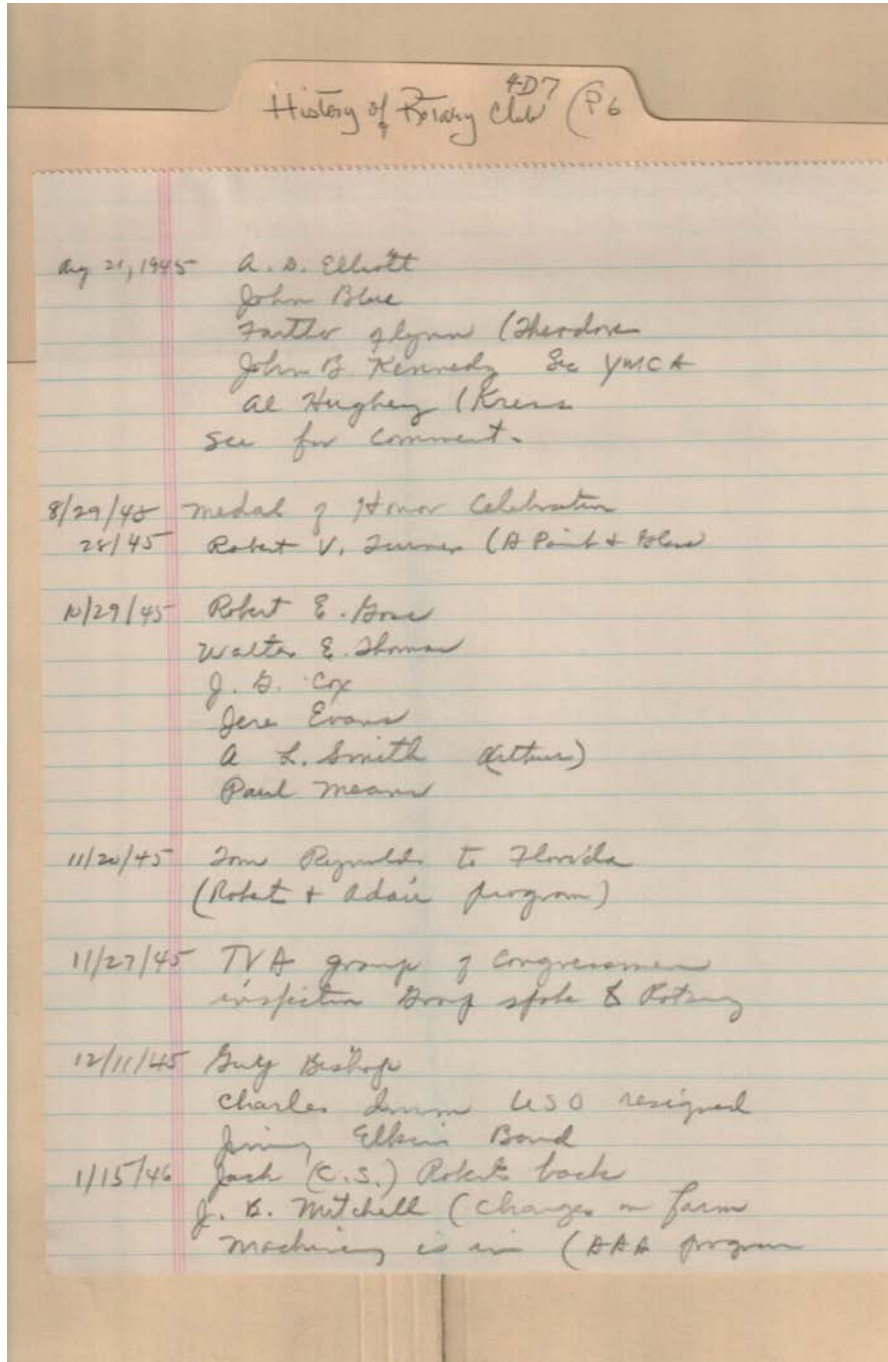 4D7
History of Rotary Club (P6
Aug 21, 1945 A. D. Elliott
John Blue
Father Flynn (Theodore
John B Kennedy Sec YMCA
Al Hughey (Kress
See for comment.
8/29/45 Medal of Honor Celebration
28/45 Robert V. Turner (A Paint + Glass
10/29/45 Robert E.
Walter E. Thomas
J. D. Cox
Jere Evans
A L. Smith (Arthur)
Paul Means
11/20/45 Tom Reynolds to Florida
(Robert + Adair program)
11/27/45 TVA group of Congressmen
inspection Group spoke & Rotary
12/11/45 Guy Bishop
Charles USO resigned
Jimmy Elkins Band
1/15/46 Jack (C.S.) Roberts back
J. B. Mitchell (Changes in farm
Machinery is in (AAA program